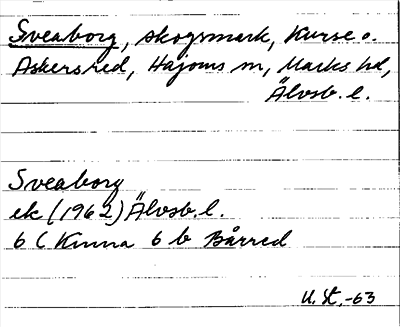 Sveaborg, skogsmark, Kurse o.
Askersred, Hajoms sn, Marks hd,
Älvsb. l.
Sveaborg
ek (1962) Älvsb. l.
6 C Kinna 6 b Bårred
U. St. -63